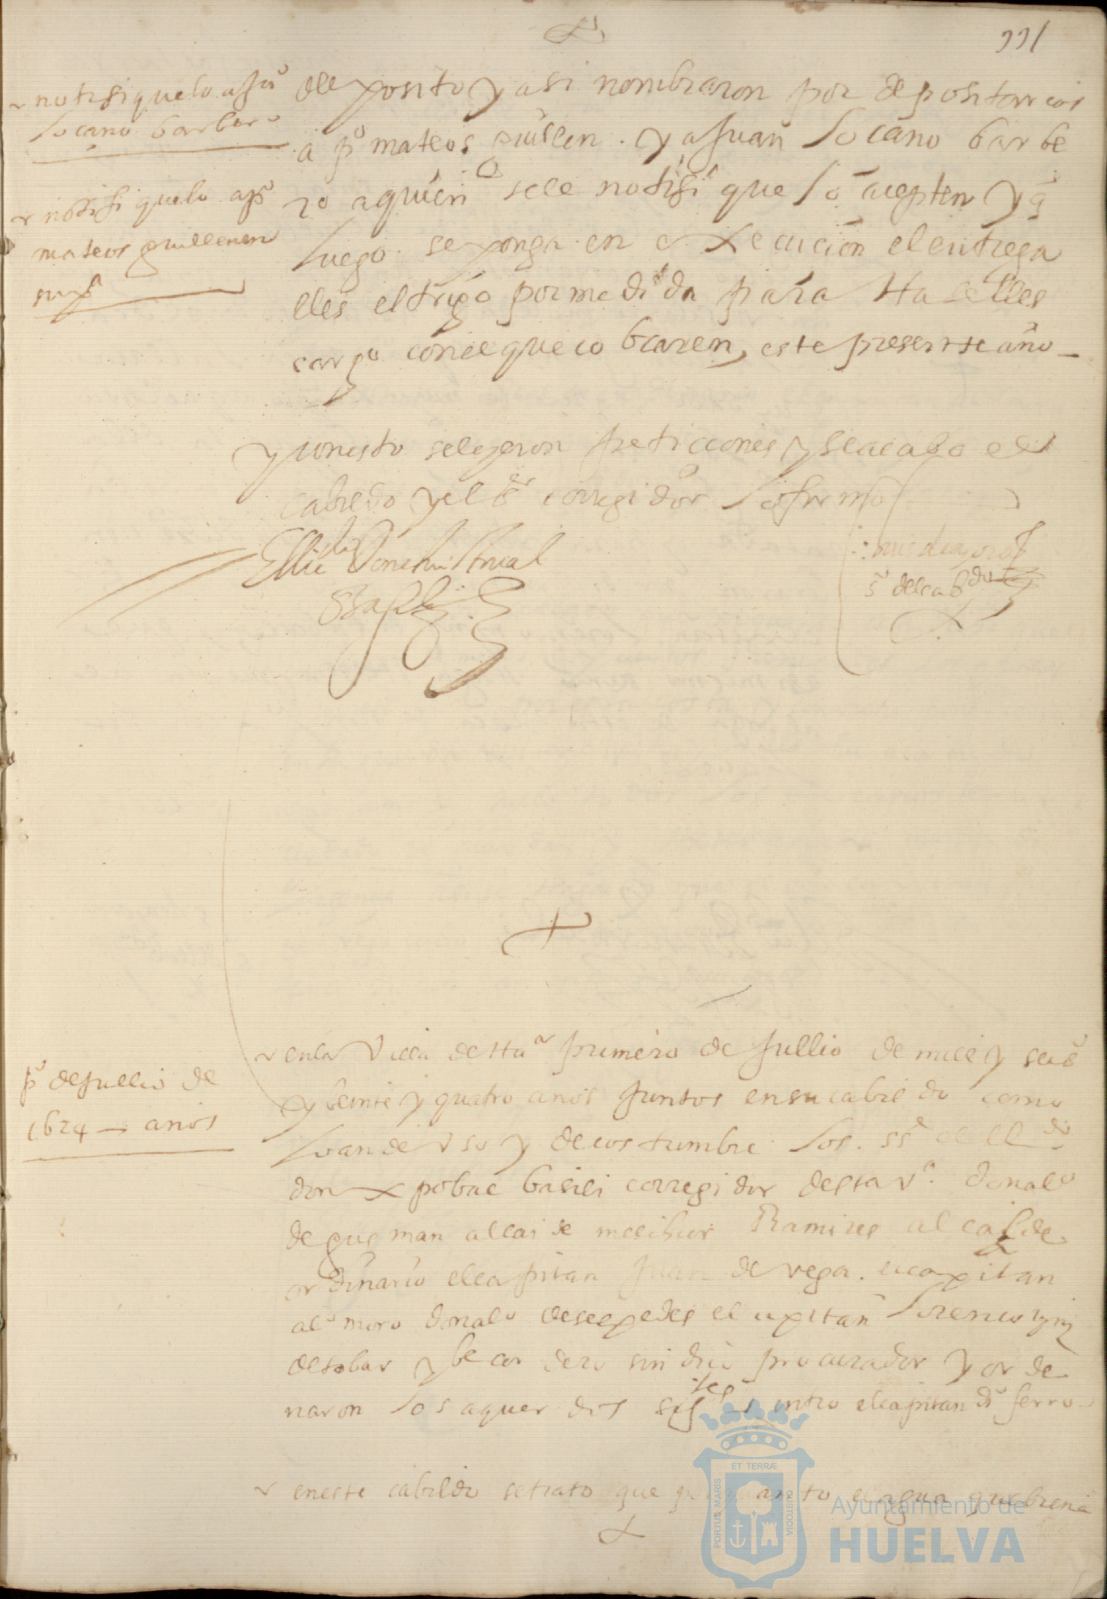 notifiquelo a Juº
locano barbero
notifiquelo a pº
mateos guillen en
su pª
deposito y asi nombraron por depositarios
a pº mateos guillen . y a Juan locano barbe
ro a quien se le notifiq que lo acepten y q
luego se ponga en execucion el entrega
lles el trigo por medida para Ha celles
cargo con el que cobraren, este presente año
y con esto se leyeron peticiones y se acabo el
cabildo y el sr corregidor lo firmo
sº del cabdo
pº de Jullio de
1624 años
en la Villa de Hua primero de Jullio de mill y seisº
y beinte y quatro años Juntos en su cabildo como
lo an de Vso y de costumbre los . ssª el lldo
don xpobal basili corregidor desta vª . don alº
de gusman alcaide melchior Ramires alcalde
ordinario el capitan Juan de vega . el capitan
alº moro don alº de sespedes el capitan lorenco
de tobar y becerdero sindico procurador y orde
naron los aquerdos sigtes entro el capitan dº ferro
en este cabildo se trato que por quanto el agua que biene
ET TERRÆ
PORTUS MARIS
CUSTODIA
Ayuntamiento de
HUELVA